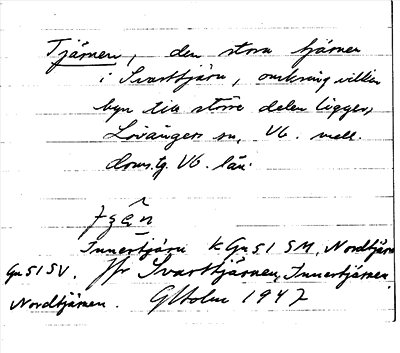 Tjärnen, den stora tjärnen
i Svarttjärn, omkring vilken
byn till större delen ligger,
Lövångers sn, Vb. mell.
doms.tg. Vb. län.
Innertjärn k Gn 51 SM, Nordtjärn
Gn 51 SV. Jfr Svarttjärnen, Innertjärnen
Nordtjärnen. GHolm 1947